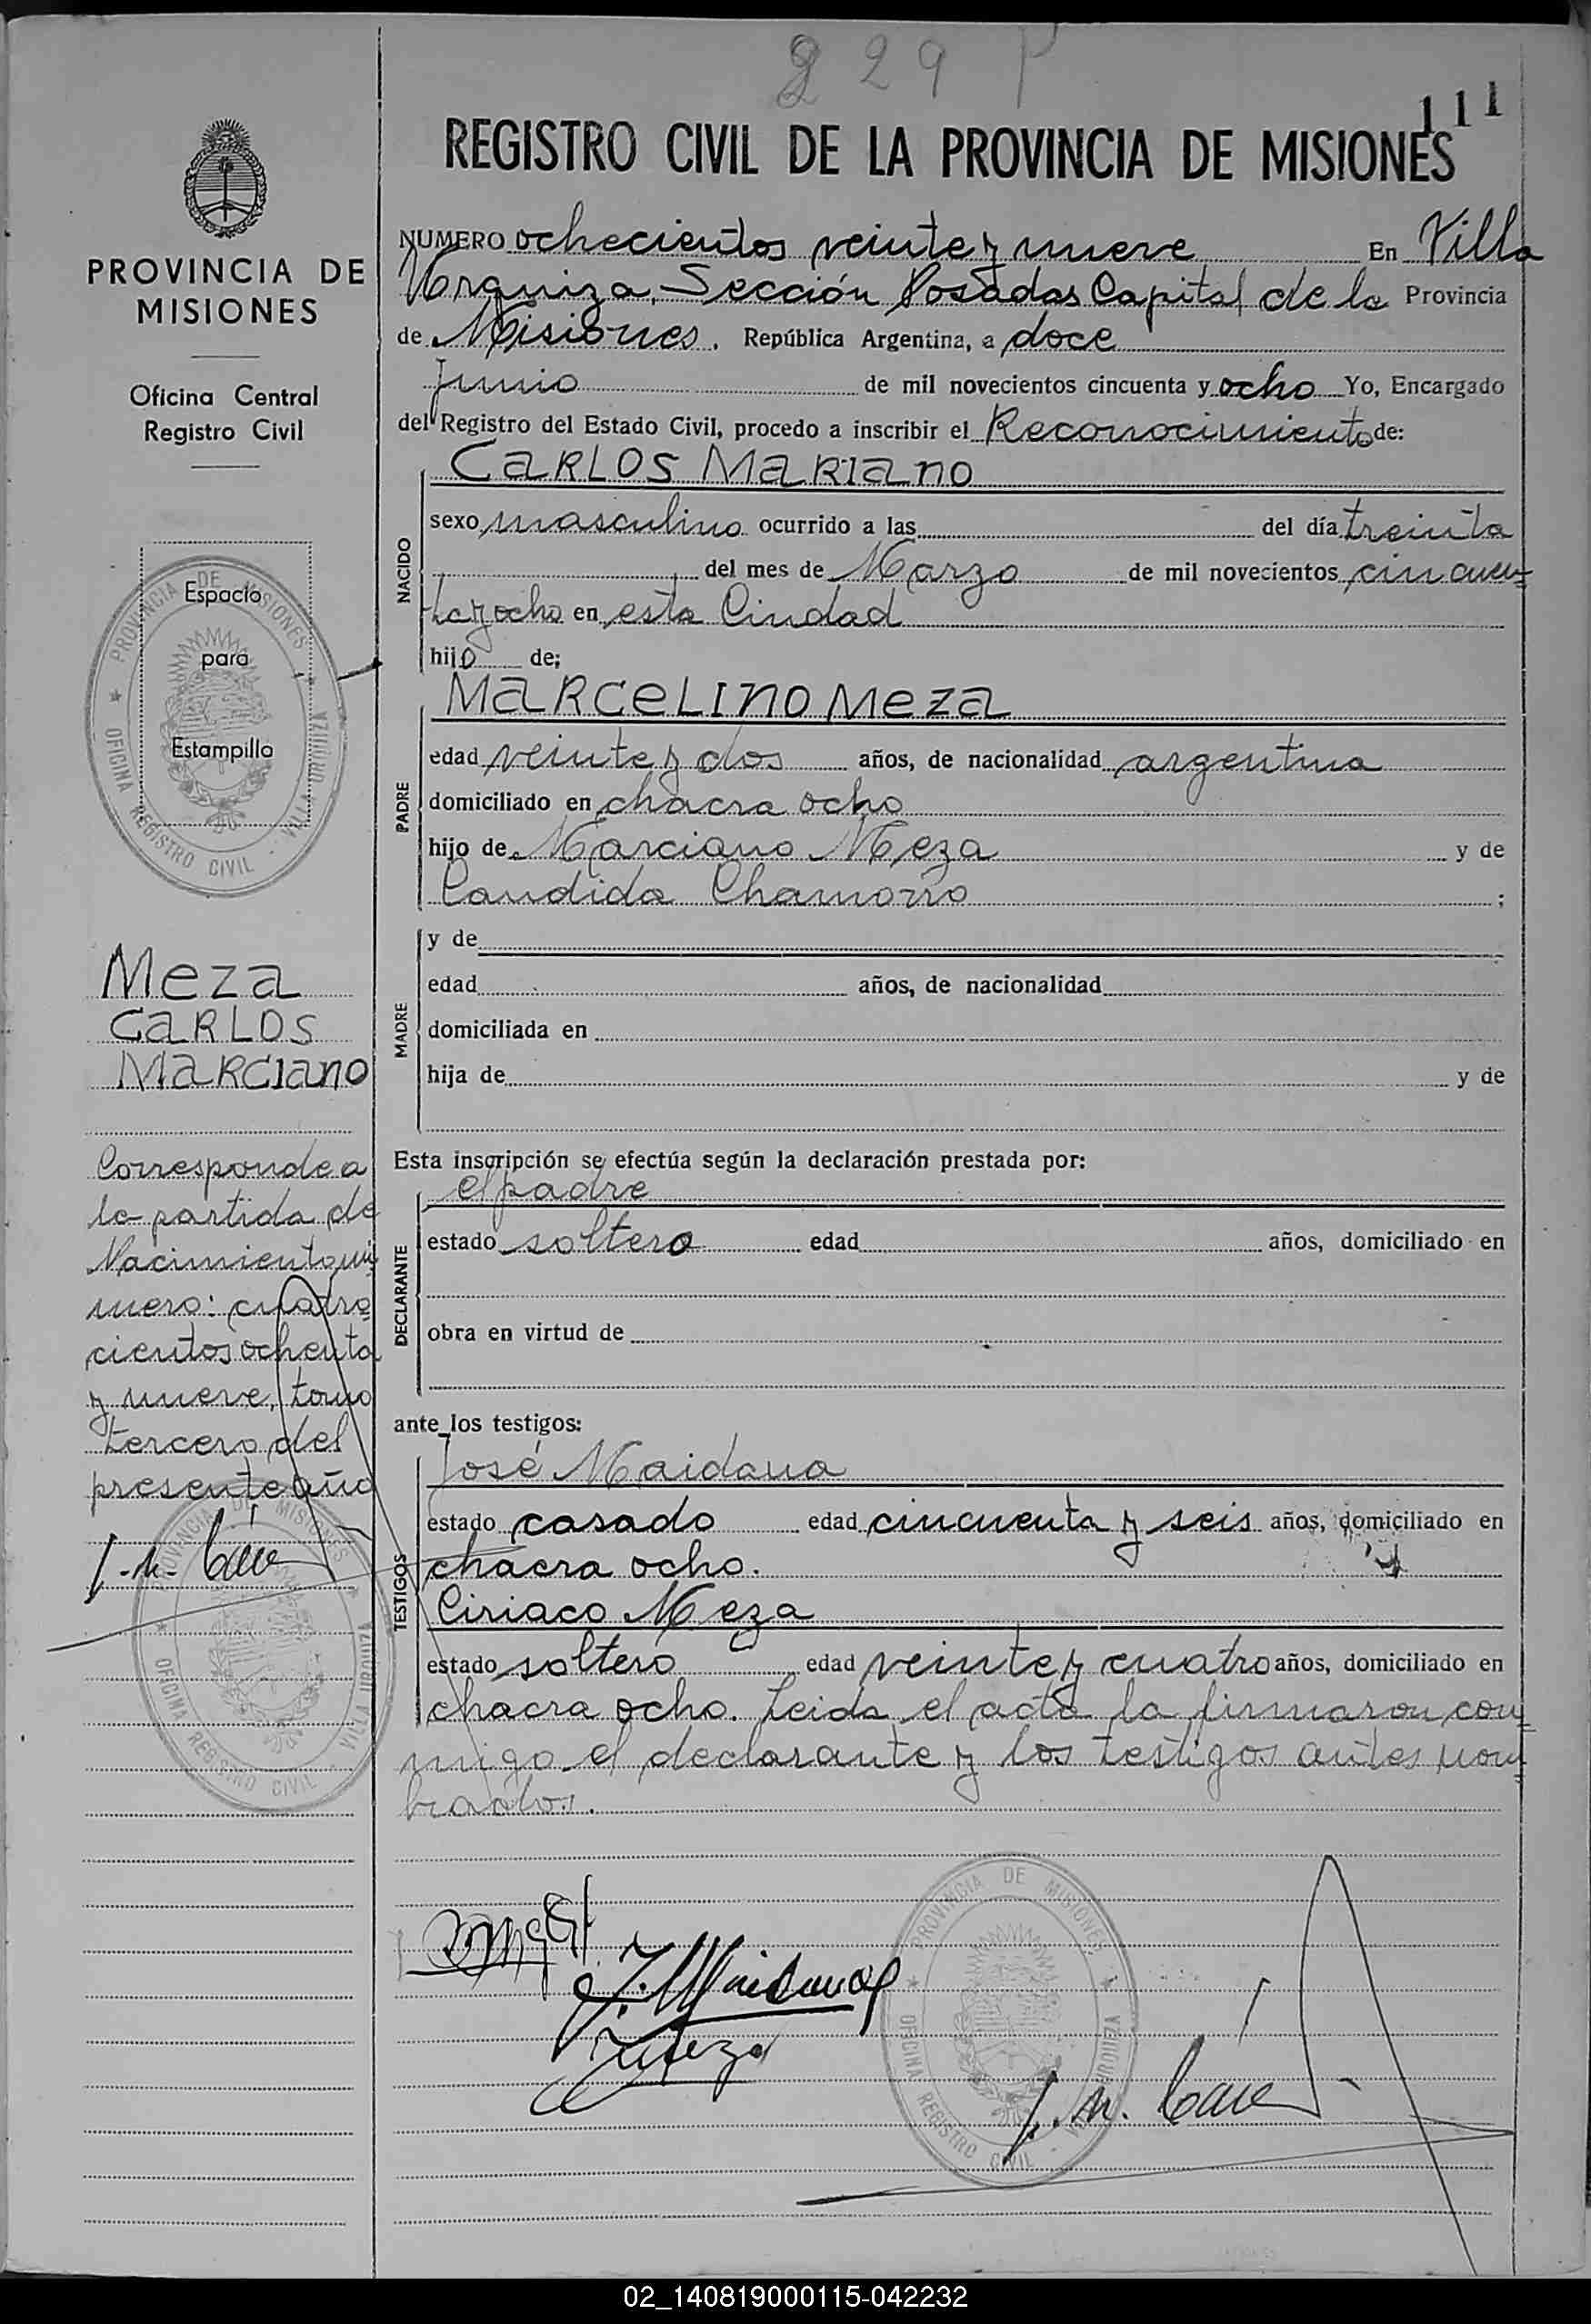 229 P
111
REGISTRO CIVIL DE LA PROVINCIA DE MISIONES
PROVINCIA DE
MISIONES
Oficina Central
Registro Civil
Espacio
para
Estampilla
PROVINCIA DE MISIONES
OFICINA REGISTRO CIVIL - VILLA URQUIZA
Meza
Carlos
Marciano
Corresponde a
la partida de
Nacimiento nú
mero: cuatro
cientos ochenta
y nueve, tomo
tercero del
presente año
PROVINCIA DE MISIONES
OFICINA REGISTRO CIVIL - VILLA URQUIZA
NUMERO ochecientos veinte y nueve En Villa
Urquiza, Sección Posadas Capital de la Provincia
de Misiones. República Argentina, a doce
Junio de mil novecientos cincuenta y ocho Yo, Encargado
del Registro del Estado Civil, procedo a inscribir el Reconocimiento de:
NACIDO
Carlos Mariano
sexo masculino ocurrido a las del día treinta
del mes de Marzo de mil novecientos cincuen=
ta y ocho en esta Ciudad
hijo de;
PADRE
Marcelino Meza
edad veinte y dos años, de nacionalidad argentina
domiciliado en chacra ocho
hijo de Marciano Meza y de
Candida Chamorro ;
MADRE
y de
edad años, de nacionalidad
domiciliada en
hija de y de
Esta inscripción se efectúa según la declaración prestada por:
DECLARANTE
el padre
estado soltero edad años, domiciliado en
obra en virtud de
ante los testigos:
TESTIGOS
José Maidana
estado casado edad cincuenta y seis años, domiciliado en
chacra ocho.
Ciriaco Meza
estado soltero edad veinte y cuatro años, domiciliado en
chacra ocho. Leida el acta la firmaron con=
migo el declarante y los testigos antes nom=
brados.
J. Maidana
PROVINCIA DE MISIONES
OFICINA REGISTRO CIVIL - V. URQUIZA
02_140819000115-042232